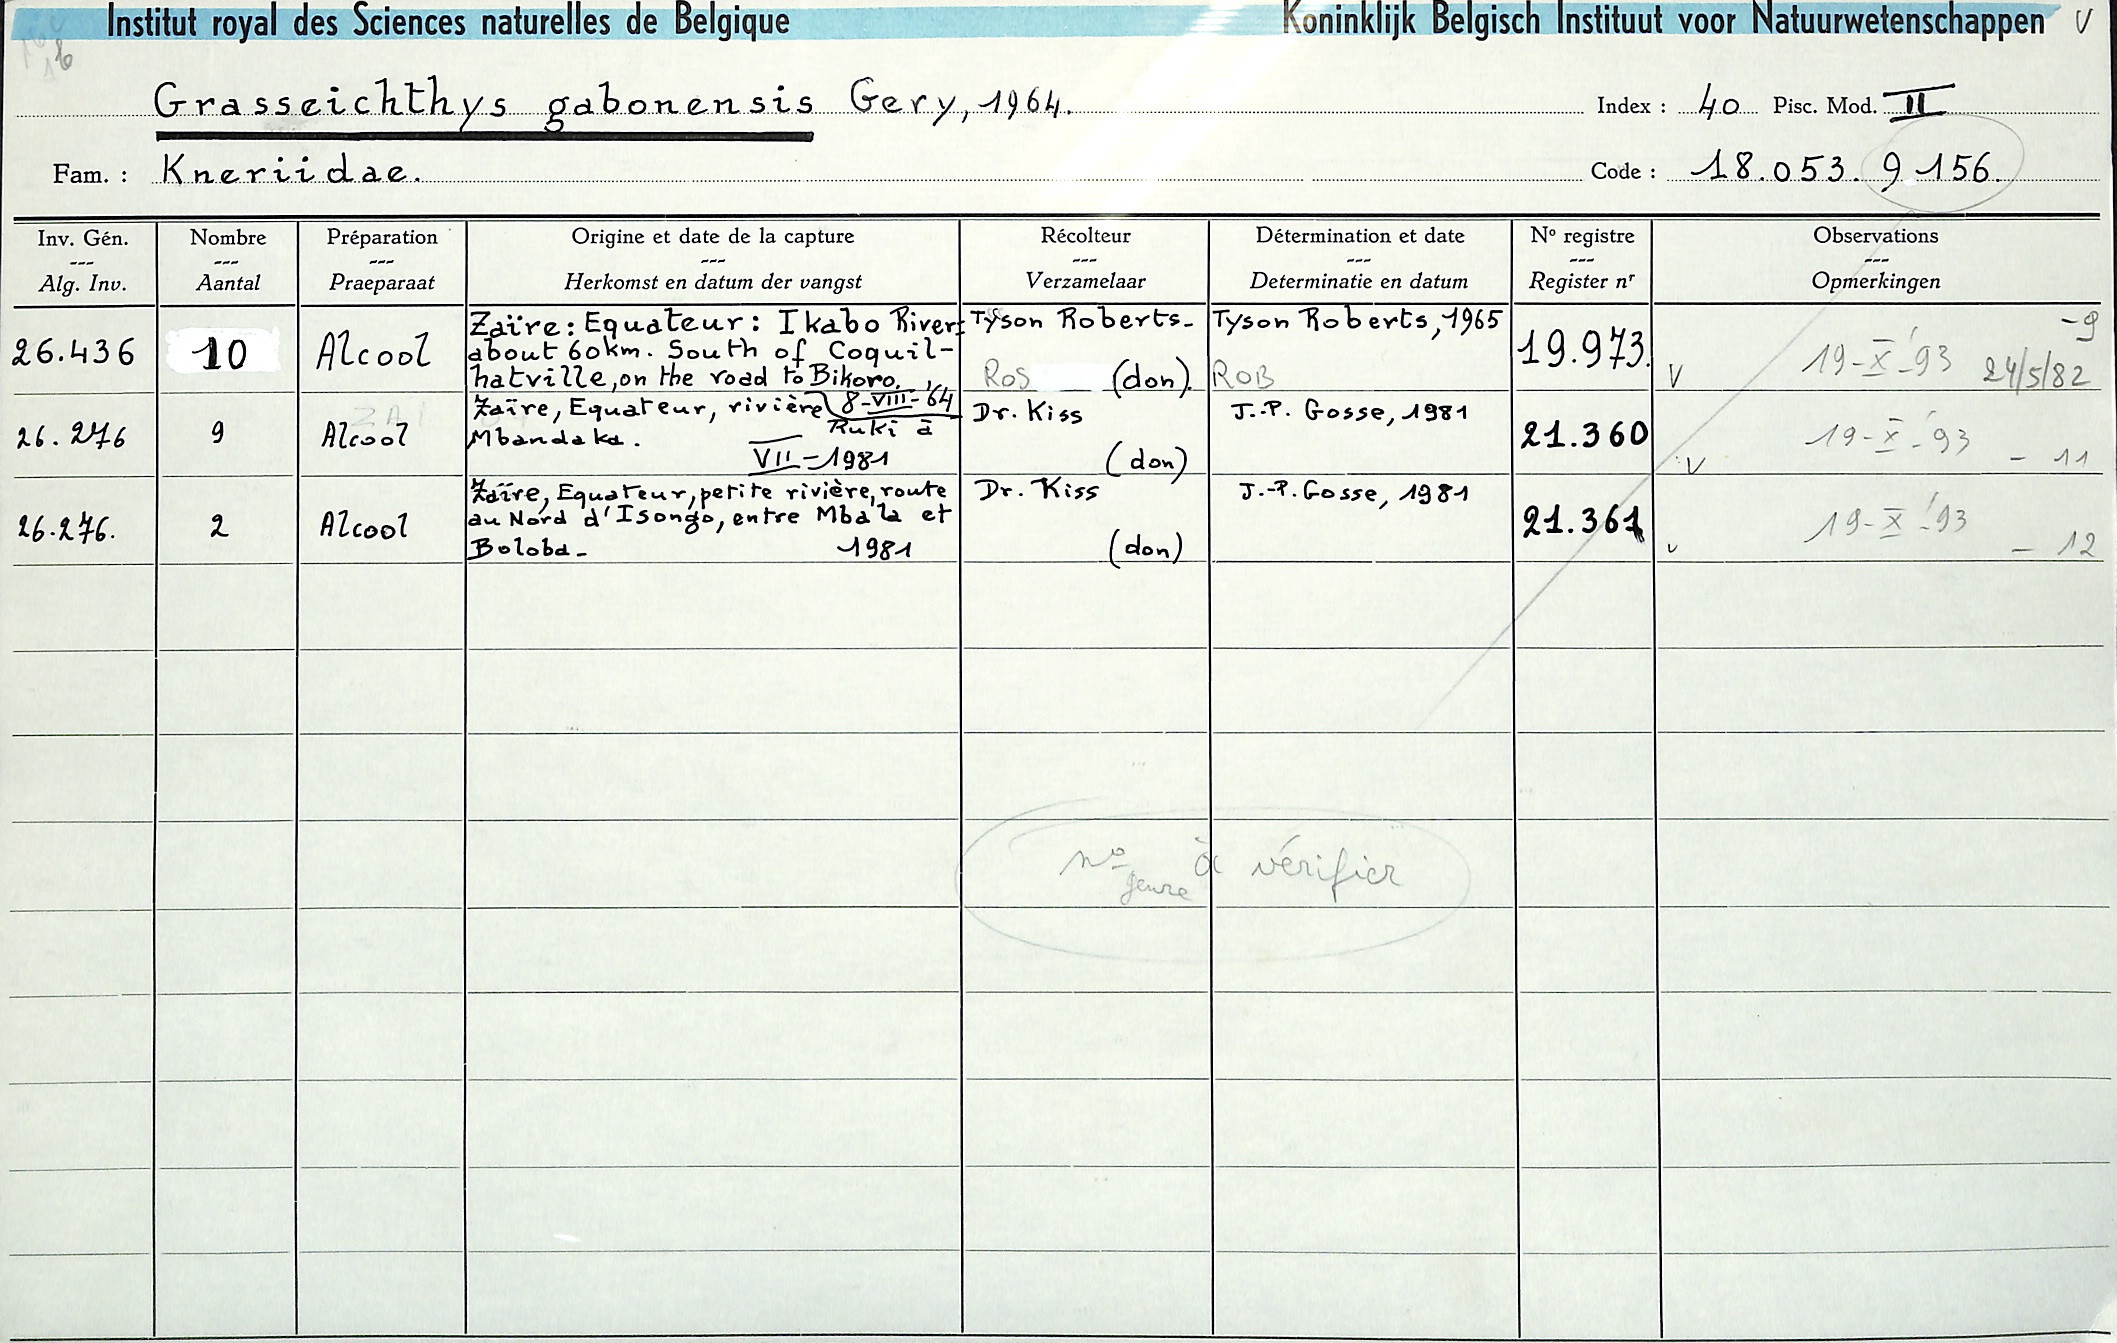 Institut royal des Sciences naturelles de Belgique Koninklijk Belgisch Instituut voor Natuurwetenschappen V
Grasseichthys gabonensis Gery, 1964. Index : 40 Pisc. Mod. II
Fam. : Kneriidae. Code : 18.053. 9 156.
Inv. Gén. Nombre Préparation Origine et date de la capture Récolteur Détermination et date Nº registre Observations
--- --- --- --- --- --- --- ---
Alg. Inv. Aantal Praeparaat Herkomst en datum der vangst Verzamelaar Determinatie en datum Register nʳ Opmerkingen
26.436 10 Alcool Zaïre: Equateur: Ikabo River: Tyson Roberts- Tyson Roberts, 1965 19.973. -9
about 60km. South of Coquil- 19-X-'93
hatville, on the road to Bikoro. RoS (don). ROB V 24/5/82
8-VIII-64
26.276 9 Alcool Zaïre, Equateur, rivière Ruki à Dr. Kiss J.-P. Gosse, 1981 21.360 19-X-'93
Mbandaka. VII-1981 (don) V - 11
26.276. 2 Alcool Zaïre, Equateur, petite rivière, route Dr. Kiss J.-P. Gosse, 1981 21.361 19-X-'93
au Nord d'Isongo, entre Mbala et
Boloba- 1981 (don) v - 12
nº genre à vérifier